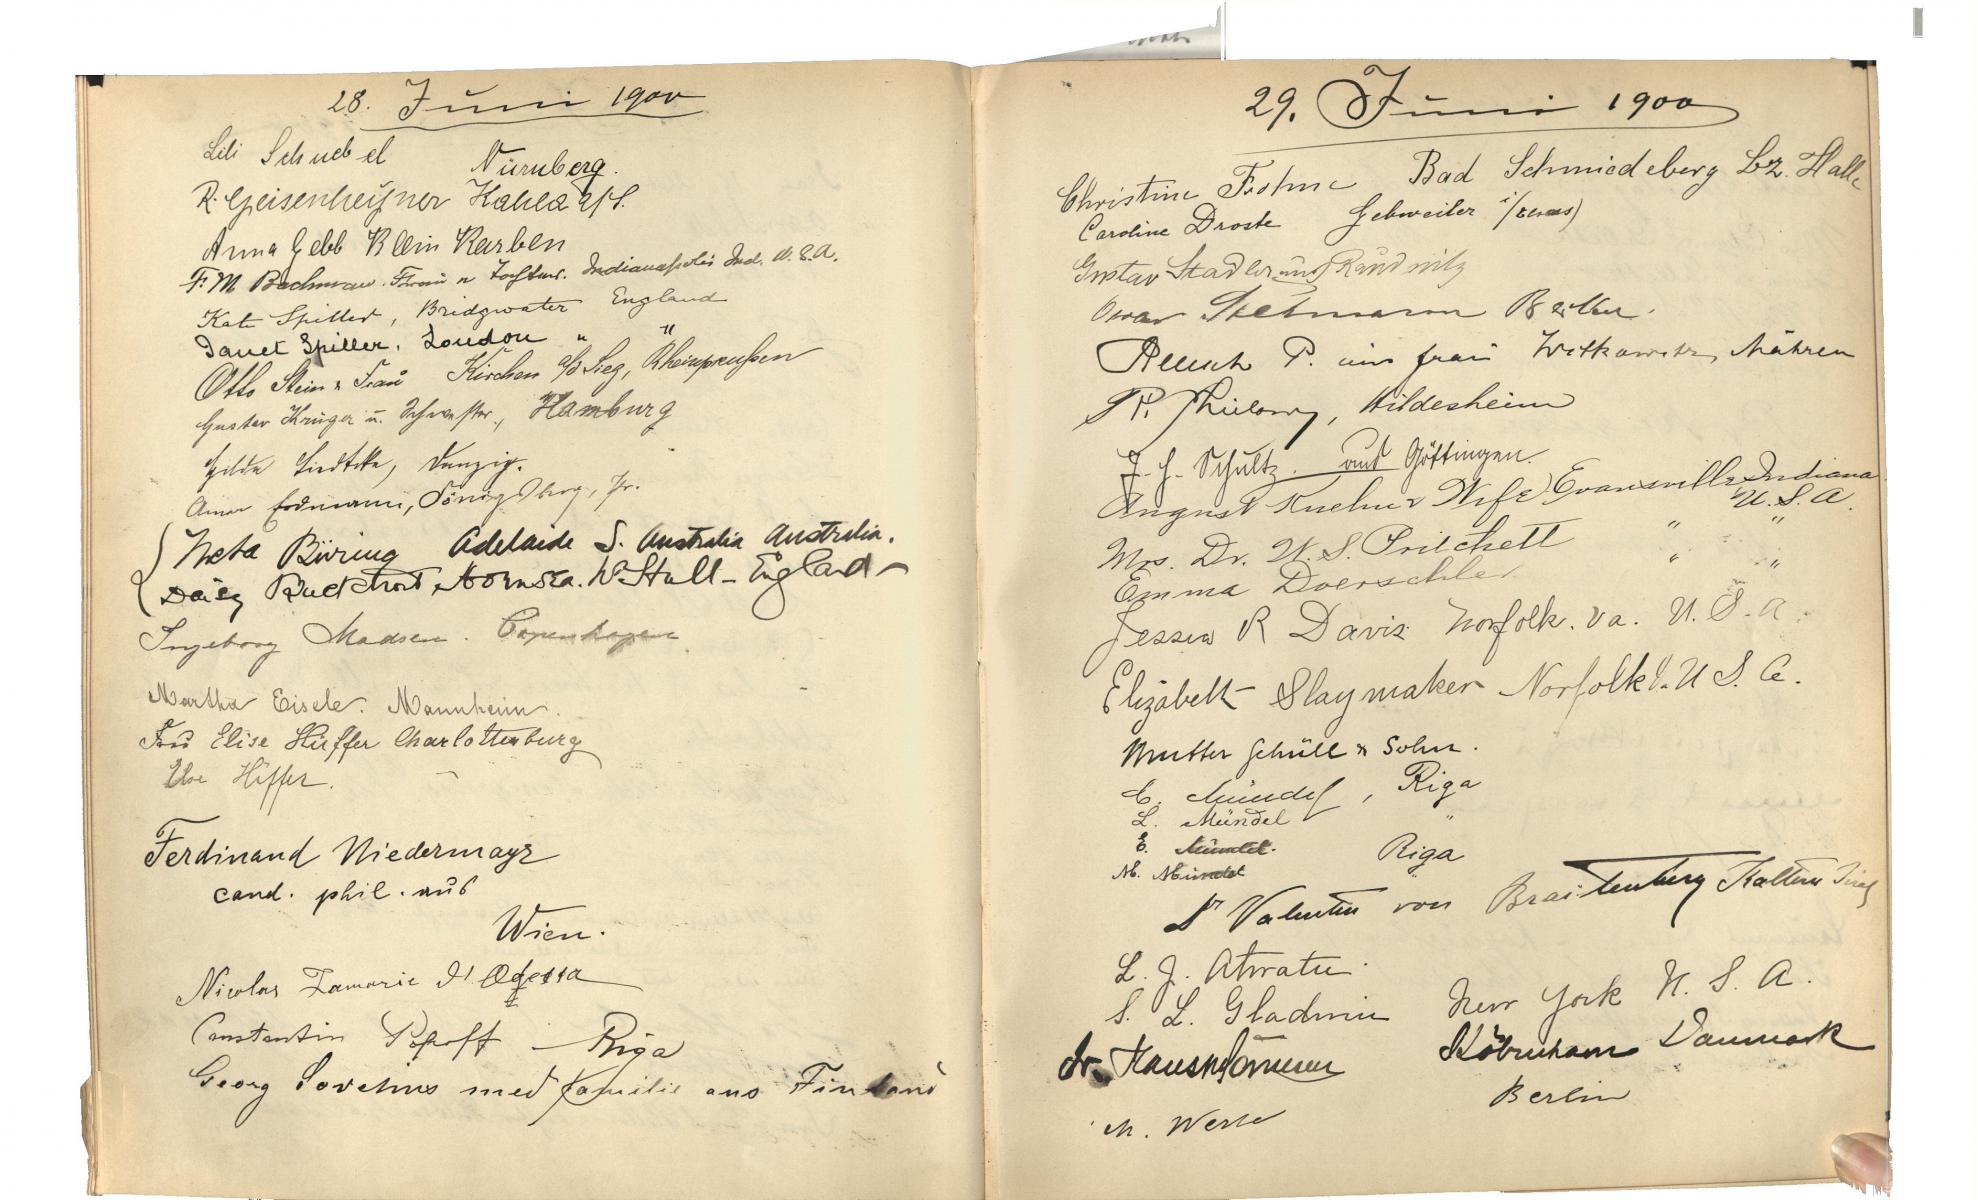 28. Juni 1900
Lili Schnebel Nürnberg.
R. Geisenheyner Kahla a/S.
Anna Gebb Klein Karben
F. M. Bachman. Frau u Tochter. Indianapolis Ind. U.S.A.
Kate Spiller, Bridgwater England
Janet Spiller, London " "
Otto Stein u Frau Kirchen a/d Sieg, Rheinpreußen
Gustav Krüger u. Schwester, Hamburg
Hilda Liedtke, Danzig.
Anna Erdmann, Königsberg, Pr.
Meta Büring Adelaide S. Australia Australia.
Daisy Hornsea. England
Ingeborg Madsen. Copenhagen
Martha Eisele. Mannheim.
Frau Elise Hüffer Charlottenburg
Else Hüffer.
Ferdinand Niedermayr
cand. phil. aus
Wien.
Nicolas d'Odessa
Constantin Popoff Riga
Georg med familie aus Finland
29. Juni 1900
Christine Frohne Bad Schmiedeberg Bz. Halle
Caroline Droste Gebweiler i/Elsass)
Gustav Stadler aus Raudnitz
Berlin.
P. und frau Witkowitz, Mähren
Hildesheim
Schultz. aus Göttingen.
August Kuehn & Wife Evansville Indiana
U.S.A.
Mrs. Dr. W. S. Pritchett " "
Emma Doerschler " "
Jessie R Davis Norfolk. Va. U.S.A.
Elizabeth Slaymaker Norfolk V. U S. A.
Mutter Gehüll u Sohn.
C. Mündel, Riga
L. Mündel "
E. Mündel. Riga
M. Mündel "
Dr Valentin von Braitenberg Kaltern Tirol
L. J. Atwater.
S. L. Gladwin New York U. S. A.
Dr. Köbenhavn Danmark
M. Berlin